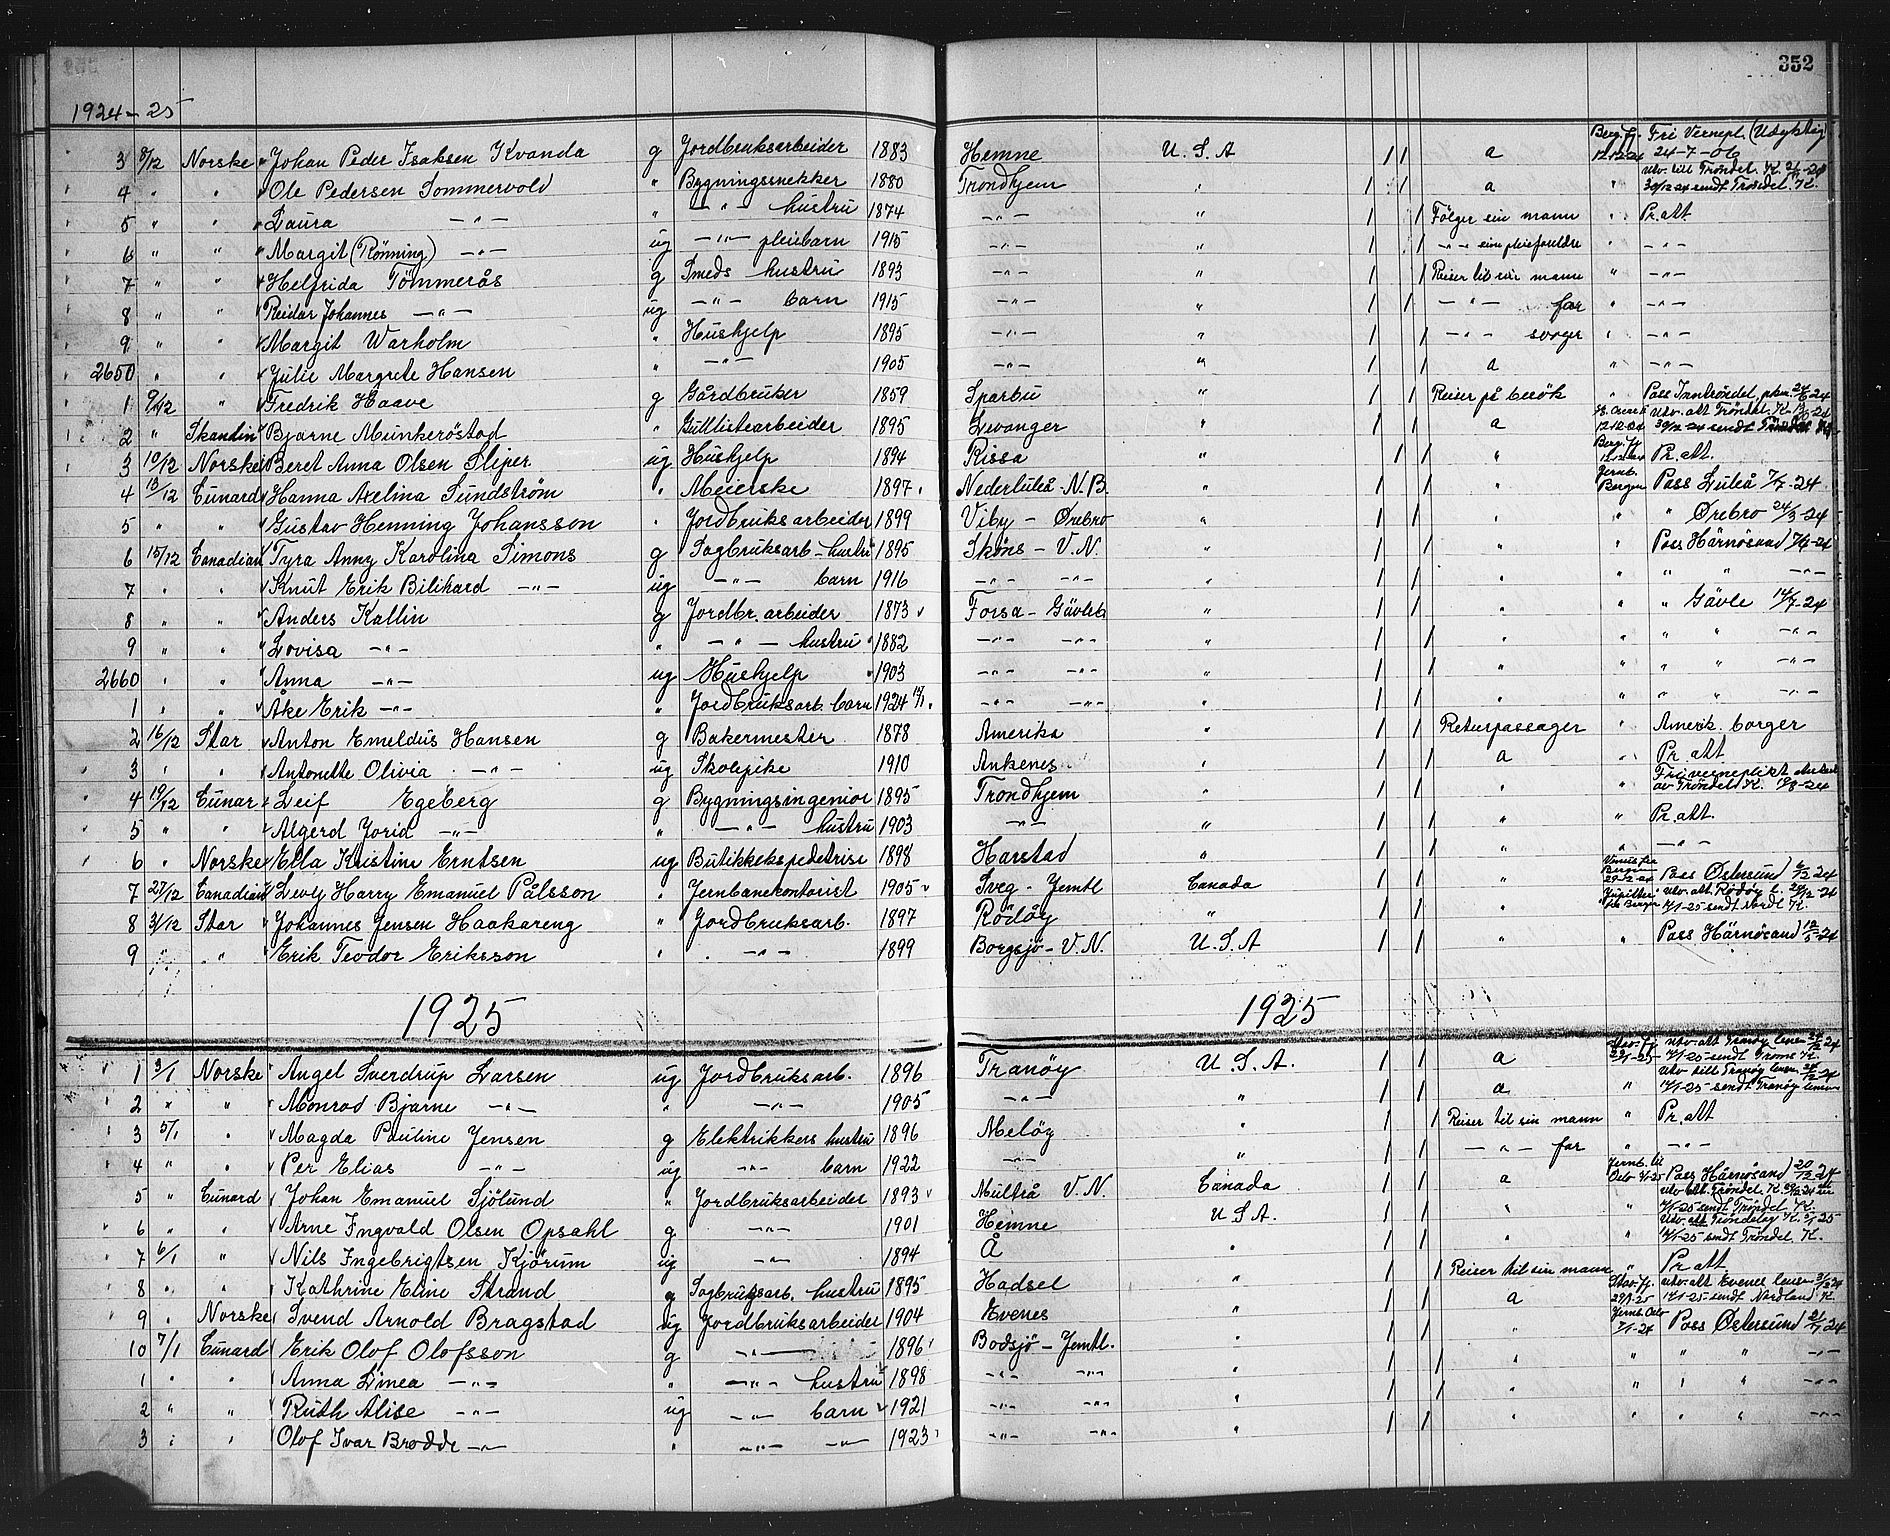 352
1924-25
3 9/12 Norske Johan Peder Isaksen Kvanda g Jordbruksarbeider 1883 Hemne U.S.A 1 1 a 12-12-24 Fri Vernepl. (Udyktig) 24-7-06
4 " " Ole Pedersen Sommervold " Bygningssnekker 1880 Trondhjem " 1 1 a " 30/12 24 sendt Trøndel. K.
5 " " Laura -"- " -"- hustru 1874 -"- " 1 1 Følger sin mann " Pr. att
6 " " Margit (Rønning) -"- ug -"- pleiebarn 1915 -"- " 1 1 -"- sine pleieforeldre " -"-
7 " " Helfrida Tömmerås g Smeds hustru 1893 -"- " 1 1 Reiser til sin mann " -"-
8 " " Reidar Johannes -"- ug -"- barn 1915 -"- " 1 1 -"- far " -"-
9 " " Margit Warholm " Hushjelp 1895 -"- " 1 1 -"- svoger " -"-
2650 " " Julie Margrete Hansen " -"- 1905 -"- " 1 1 a " -"-
1 9/12 " Fredrik Haave g Gårdbruker 1859 Sparbu " 1 1 Reiser på besök " Pass Inntröndel. pkm.
2 " Skandin Bjarne Munkeröstad " Gullistearbeider 1895 Levanger " 1 1 a 12-12-24 30/12 24 sendt
3 10/12 Norske Beret Anna Olsen Sliper ug Hushjelp 1894 Rissa " 1 1 " Pr. att.
4 13/12 Cunard Hanna Axelina Sundström " Meierske 1897 Nederluleå - N.B. " 1 1 " Jernb. Bergen Pass Luleå 7/7-24
5 " " Gustav Henning Johansson " Jordbruksarbeider 1899 Viby - Örebro " 1 1 " " " Örebro 24/3-24
6 15/12 Canadian Tyra Anny Karolina Simons g Sagbruksarb-hustru 1895 Sköns - V.N. " 1 1 " " Pass Härnösand 7/4-24
7 " " Knut Erik Bilikard -"- ug -"- barn 1916 -"- -"- " 1 1 " " " " -"-
8 " " Anders Kallin g Jordbr. arbeider 1873 Forsa - Gävleb. " 1 1 " " " Gävle 14/7-24
9 " " Lovisa -"- " -"- hustru 1882 -"- -"- " 1 1 " " " " -"-
2660 " " Anna -"- ug Hushjelp 1903 -"- -"- " 1 1 " " " " -"-
1 " " Åke Erik -"- " Jordbruksarb. barn 1924 -"- -"- " 1 1 " " " " -"-
2 16/12 Star Anton Emeldus Hansen g Bakermester 1878 Amerika " 1 1 Returpassager " Amerik. borger
3 " " Antonette Olivia -"- ug Skolepike 1910 Ankenes " 1 1 a " Pr. att
4 19/12 Cunar Leif Egeberg g Bygningsingeniør 1895 Trondhjem " 1 1 " " Fri verneplikt av Trøndel. K. 19/8-24
5 " " Algerd Jorid -"- " -"- hustru 1903 -"- " 1 1 " " Pr. att.
6 " Norske Ella Kristine Erntsen ug Butikkekspedetrise 1898 Harstad " 1 1 " " -"-
7 27/12 Canadian Levy Harry Emanuel Pålsson " Jernbanekontorist 1905 Sveg - Jemtl Canada 1 1 " Bergen 29-12-24 Pass Östersund 6/12 24
8 31/12 Star Johannes Jensen Haakareng " Jordbruksarb. 1897 Rödöy " 1 1 " Utv. att. Rödöy l. 7/1-25 sendt Nordl. K.
9 " " Erik Teodor Eriksson " -"- 1899 Borgsjö - V.N. U.S.A 1 1 " " Pass Härnösand 12/5-24
1925 1925
1 3/1 Norske Angel Sverdrup Larsen ug Jordbruksarb. 1896 Tranöy U.S.A. 1 1 a Utv. att Tranöy lensm. 7/1-25 sendt Troms K.
2 " " Monrad Bjarne -"- " -"- 1905 -"- " 1 1 a " Utv. till Tranöy lensm. 17/1-25 sendt Tranöy lensm
3 5/1 " Magda Pauline Jensen g Elektrikkers hustru 1896 Melöy " 1 1 Reiser til sin mann " Pr. att
4 " " Per Elias -"- ug -"- barn 1922 -"- " 1 1 -"- far " -"-
5 " Cunard Johan Emanuel Sjölund " Jordbruksarbeider 1893 Multrå V.N. Canada 1 1 a Jernb. til Oslo Pass Härnösand 20/12 24
6 " " Arne Ingvald Olsen Opsahl g -"- 1901 Hemne U.S.A. 1 1 " " 7/1-25 sendt Tröndel. K.
7 6/1 " Nils Ingebrigtsen Kjörum ug -"- 1894 Å " 1 1 " " 7/1-25 sendt Tröndel. K.
8 " " Kathrine Eline Strand g Sagbruksarb. hustru 1895 Hadsel " 1 1 Reiser til sin mann " Pr att
9 " Norske Svend Arnold Bragstad ug Jordbruksarbeider 1904 Evenes " 1 1 a Utv. att Evenes lensm 17/1-25 sendt Nordland K.
10 7/1 Cunard Erik Olof Olofsson g -"- 1896 Bodsjö - Jemtl. " 1 1 " Jernb. Oslo 7/1-24 Pass Östersund
1 " " Anna Linea -"- " -"- hustru 1898 -"- -"- " 1 1 " " " " -"-
2 " " Ruth Alise -"- ug -"- barn 1921 -"- -"- " 1 1 " " " " -"-
3 " " Olof Ivar Brodde -"- " -"- -"- 1923 -"- -"- " 1 1 " " " " -"-